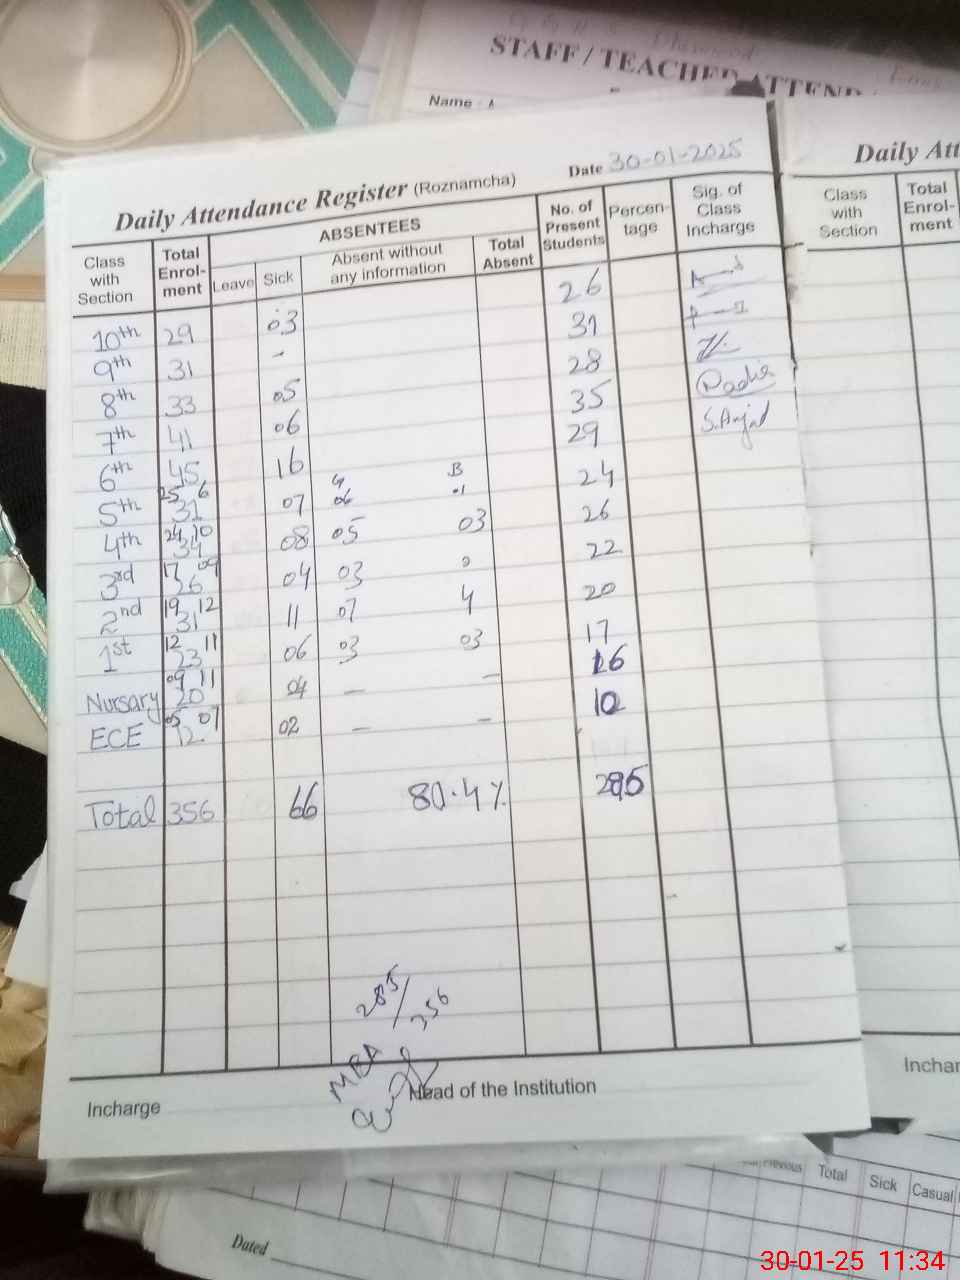 STAFF / TEACHER ATTEND
Name :
Daily Attendance Register (Roznamcha)
Date 30-01-2025
Class with Section
Total Enrol- ment
ABSENTEES
Leave
Sick
Absent without any information
Total Absent
No. of Present Students
Percen- tage
Sig. of Class Incharge
10th 29 03 26
9th 31 - 31
8th 33 05 28
7th 41 06 35
6th 45 16 29 S.Amjad
G B
5th 25 6 31 07 06 01 24
4th 24 10 34 08 05 03 26
3rd 17 09 26 04 03 0 22
2nd 19 12 31 11 07 4 20
1st 12 11 23 06 03 03 17
Nursary 09 11 20 04 - - 16
ECE 05 07 12 02 - - 10
Total 356 66 80.4% 285
285/356
MEA
Incharge
Head of the Institution
Daily Att
Class with Section
Total Enrol- ment
Incharg
Previous Total Sick Casual
Dated
30-01-25 11:34